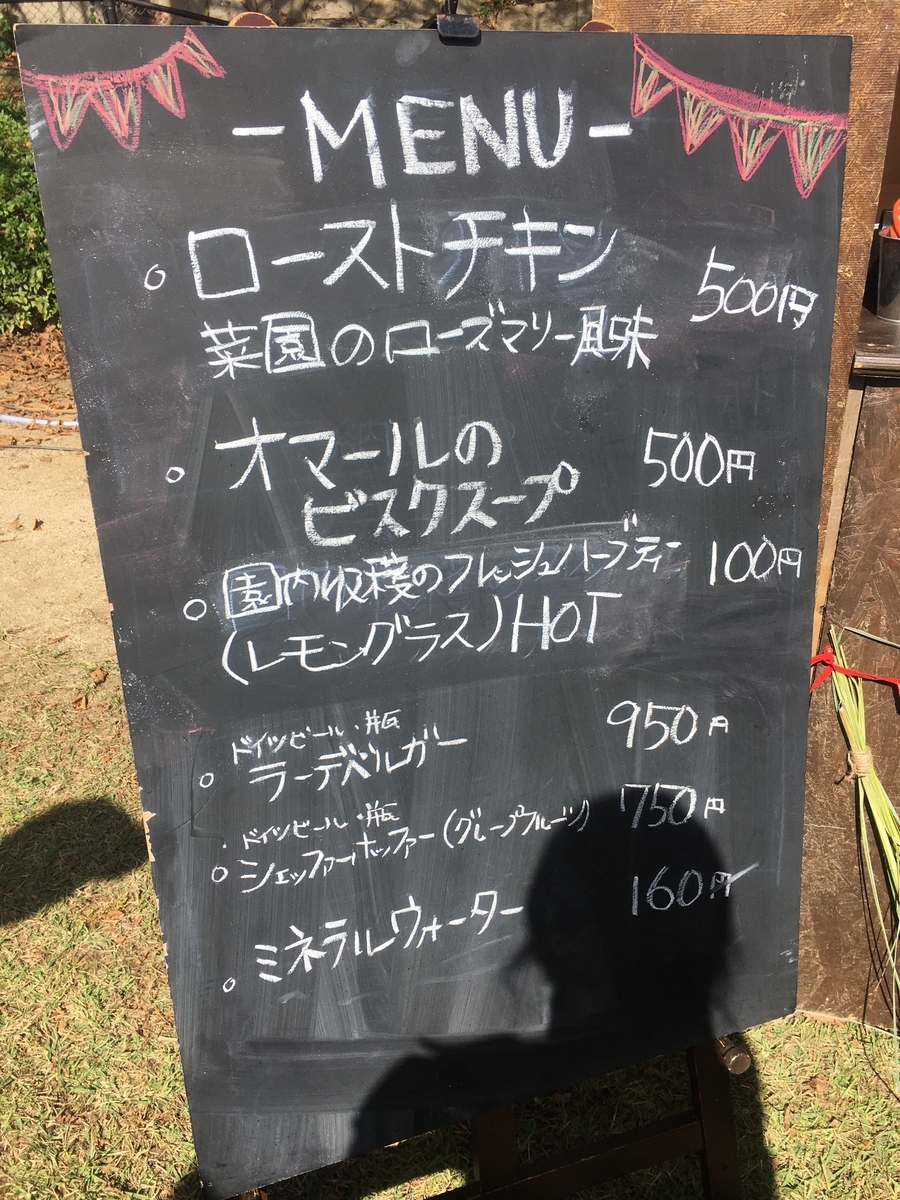 -MENU-
ローストチキン 500円
菜園のローズマリー風味
オマールの 500円
ビスクスープ
園内収穫のフレッシュハーブティー 100円
(レモングラス)HOT
ドイツビール・瓶 950円
ラーデベルガー
ドイツビール・瓶 750円
シェッファーホッファー(グレープフルーツ)
ミネラルウォーター 160円